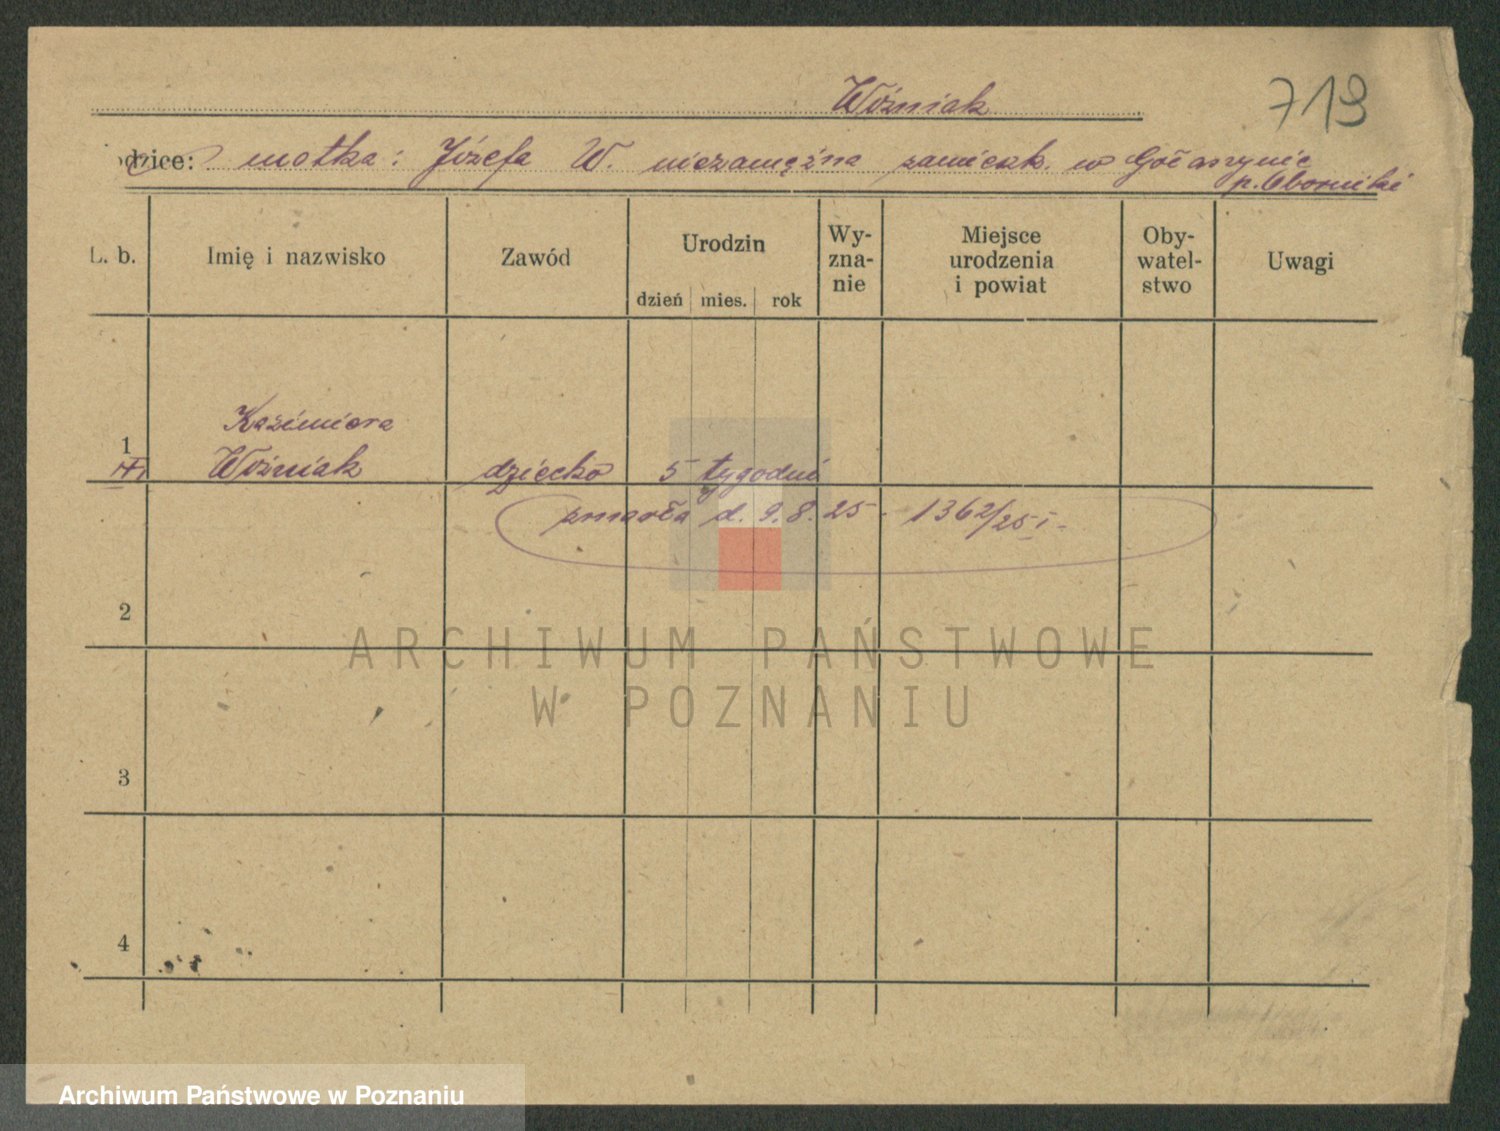 Woźniak
719
odzice: matka: Józefa W. niezamężna zamieszk. w Gołaszynie
p. Oborniki
L. b. Imię i nazwisko Zawód Urodzin dzień mies. rok Wy-zna-nie Miejsce urodzenia i powiat Oby-watel-stwo Uwagi
Kazimiera
1 Woźniak dziecko 5 tygodni
zmarła d. 9. 8. 25. 1362/25 I.
2
ARCHIWUM PAŃSTWOWE
W POZNANIU
3
4
Archiwum Państwowe w Poznaniu